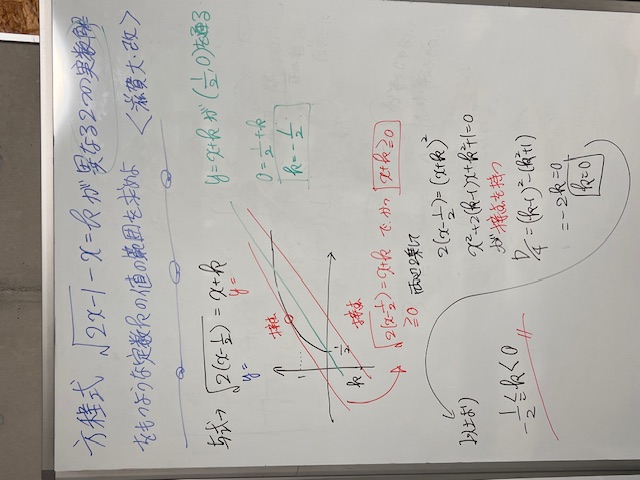 方程式 √2x-1 - x = k が 異なる2つの実数解
をもつような定数kの値の範囲を求めよ 〈滋賀大・改〉
与式→ √2(x-1/2) = x+k
y= y=
y=x+kが(1/2,0)を通る
0=1/2+k
k=-1/2
接点
接点
1
1/2
k
√2(x-1/2) = x+k で かつ x+k≧0
≧0
両辺2乗して
2(x-1/2)=(x+k)²
x²+2(k-1)x+k²+1=0
が接点を持つ
D/4=(k-1)²-(k²+1)
=-2k=0
k=0
以上より
-1/2≦k<0